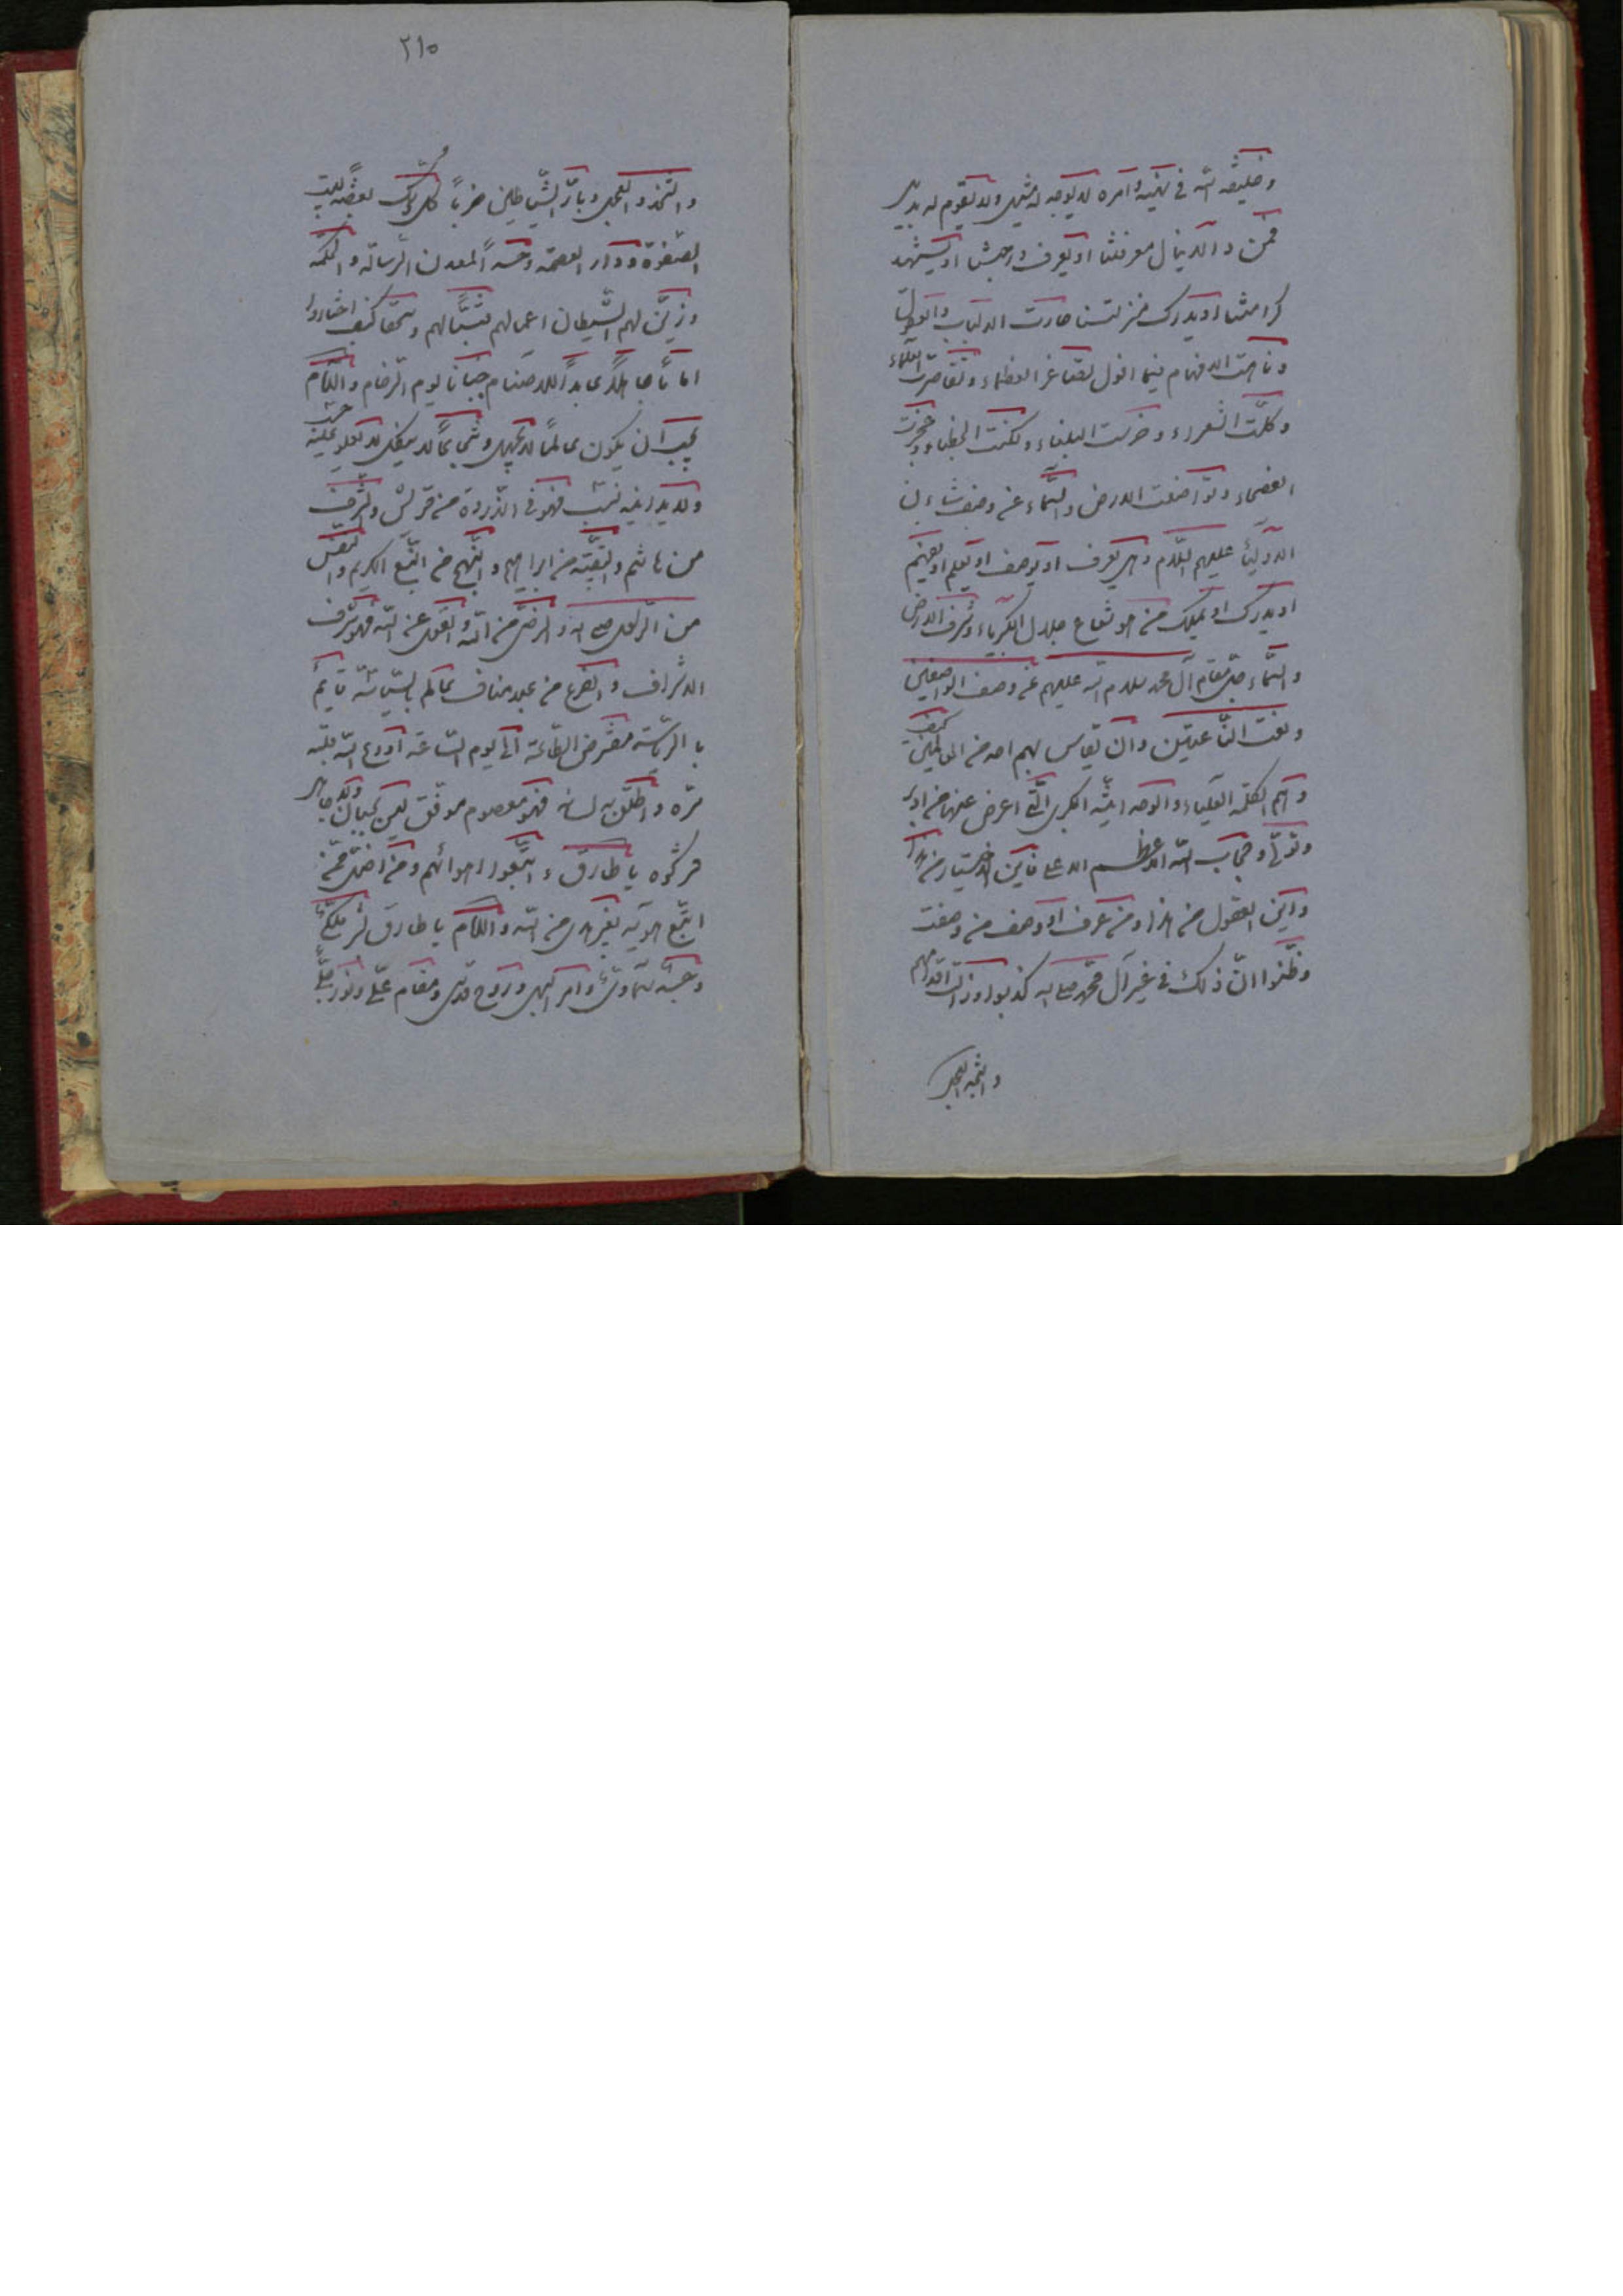 وخليفة الله في نهيه وامره لا يوجد له مثيل ولا يقوم له بديل
فمن ذا الذي ينال معرفتنا او يعرف درجتنا او يشهد
كرامتنا او يدرك منزلتنا حارت الالباب والعقول
وتاهت الافهام فيما اقول تصاغر العظماء وتقاصرت العلماء
وكلّت الشعراء وخرست البلغاء ولكنت الخطباء وعجزت
الفصحاء وتواضعت الارض والسّماء عن وصف شان
الاولياء عليهم السّلام وهل يعرف او يوصف او يعلم او يفهم
او يدرك او يملك من هو شعاع جلال الكبرياء وشرف الارض
والسّماء جلّ مقام آل محمد سلام الله عليهم عن وصف الواصفين
ونعت النّاعتين وان يقاس بهم احد من العالمين كيف
وهم الكلمة العلياء و الكبرى الّتي اعرض عنها من ادبر
وتولّى وحجاب الله الاعظم الاعلى فاين الاختيار من هذا
واين العقول من هذا ومن عرف او وصف من وصفت
وظنّوا انّ ذلك في غير آل محمّد كذبوا وزلّت اقدامهم
واتّخذوا العجل
٢١٥
واتّخذوا العجل ربّاً والشّياطين حزباً كل ذلك بغضة لبيت
الصفوة ودار العصمة وحسداً لمعدن الرّسالة والحكمة
وزيّن لهم الشّيطان اعمالهم فتبّاً لهم وسحقا كيف اختاروا
اماماً جاهلاً عابداً للاصنام جباناً يوم الزّحام والامام
يجب ان يكون عالماً لا يجهل وشجاعاً لا ينكل لا يعلو عليه حسب
ولا يدانيه نسب فهو في الذّروة من قريش والشّرف
من هاشم والبقيّة من ابراهيم والنّهج من النّبع الكريم والنّفس
من الرّسول والرضى من الله والقول عن الله فهو شرف
الاشراف والفرع من عبد مناف عالم بالسّياسة قائم
بالرّياسة مفترض الطّاعة الى يوم السّاعة اودع الله قلبه
سرّه واطلق به لسانه فهو معصوم موفّق ليس بجبان ولا جاهل
فتركوه يا طارق و اتّبعوا اهوائهم ومن اضلّ ممّن
اتّبع هويه بغير هدى من الله والامام يا طارق بشر ملكيّ
وجسد سماويّ وامر الهي وروح قدسي ومقام عليّ ونور جليّ